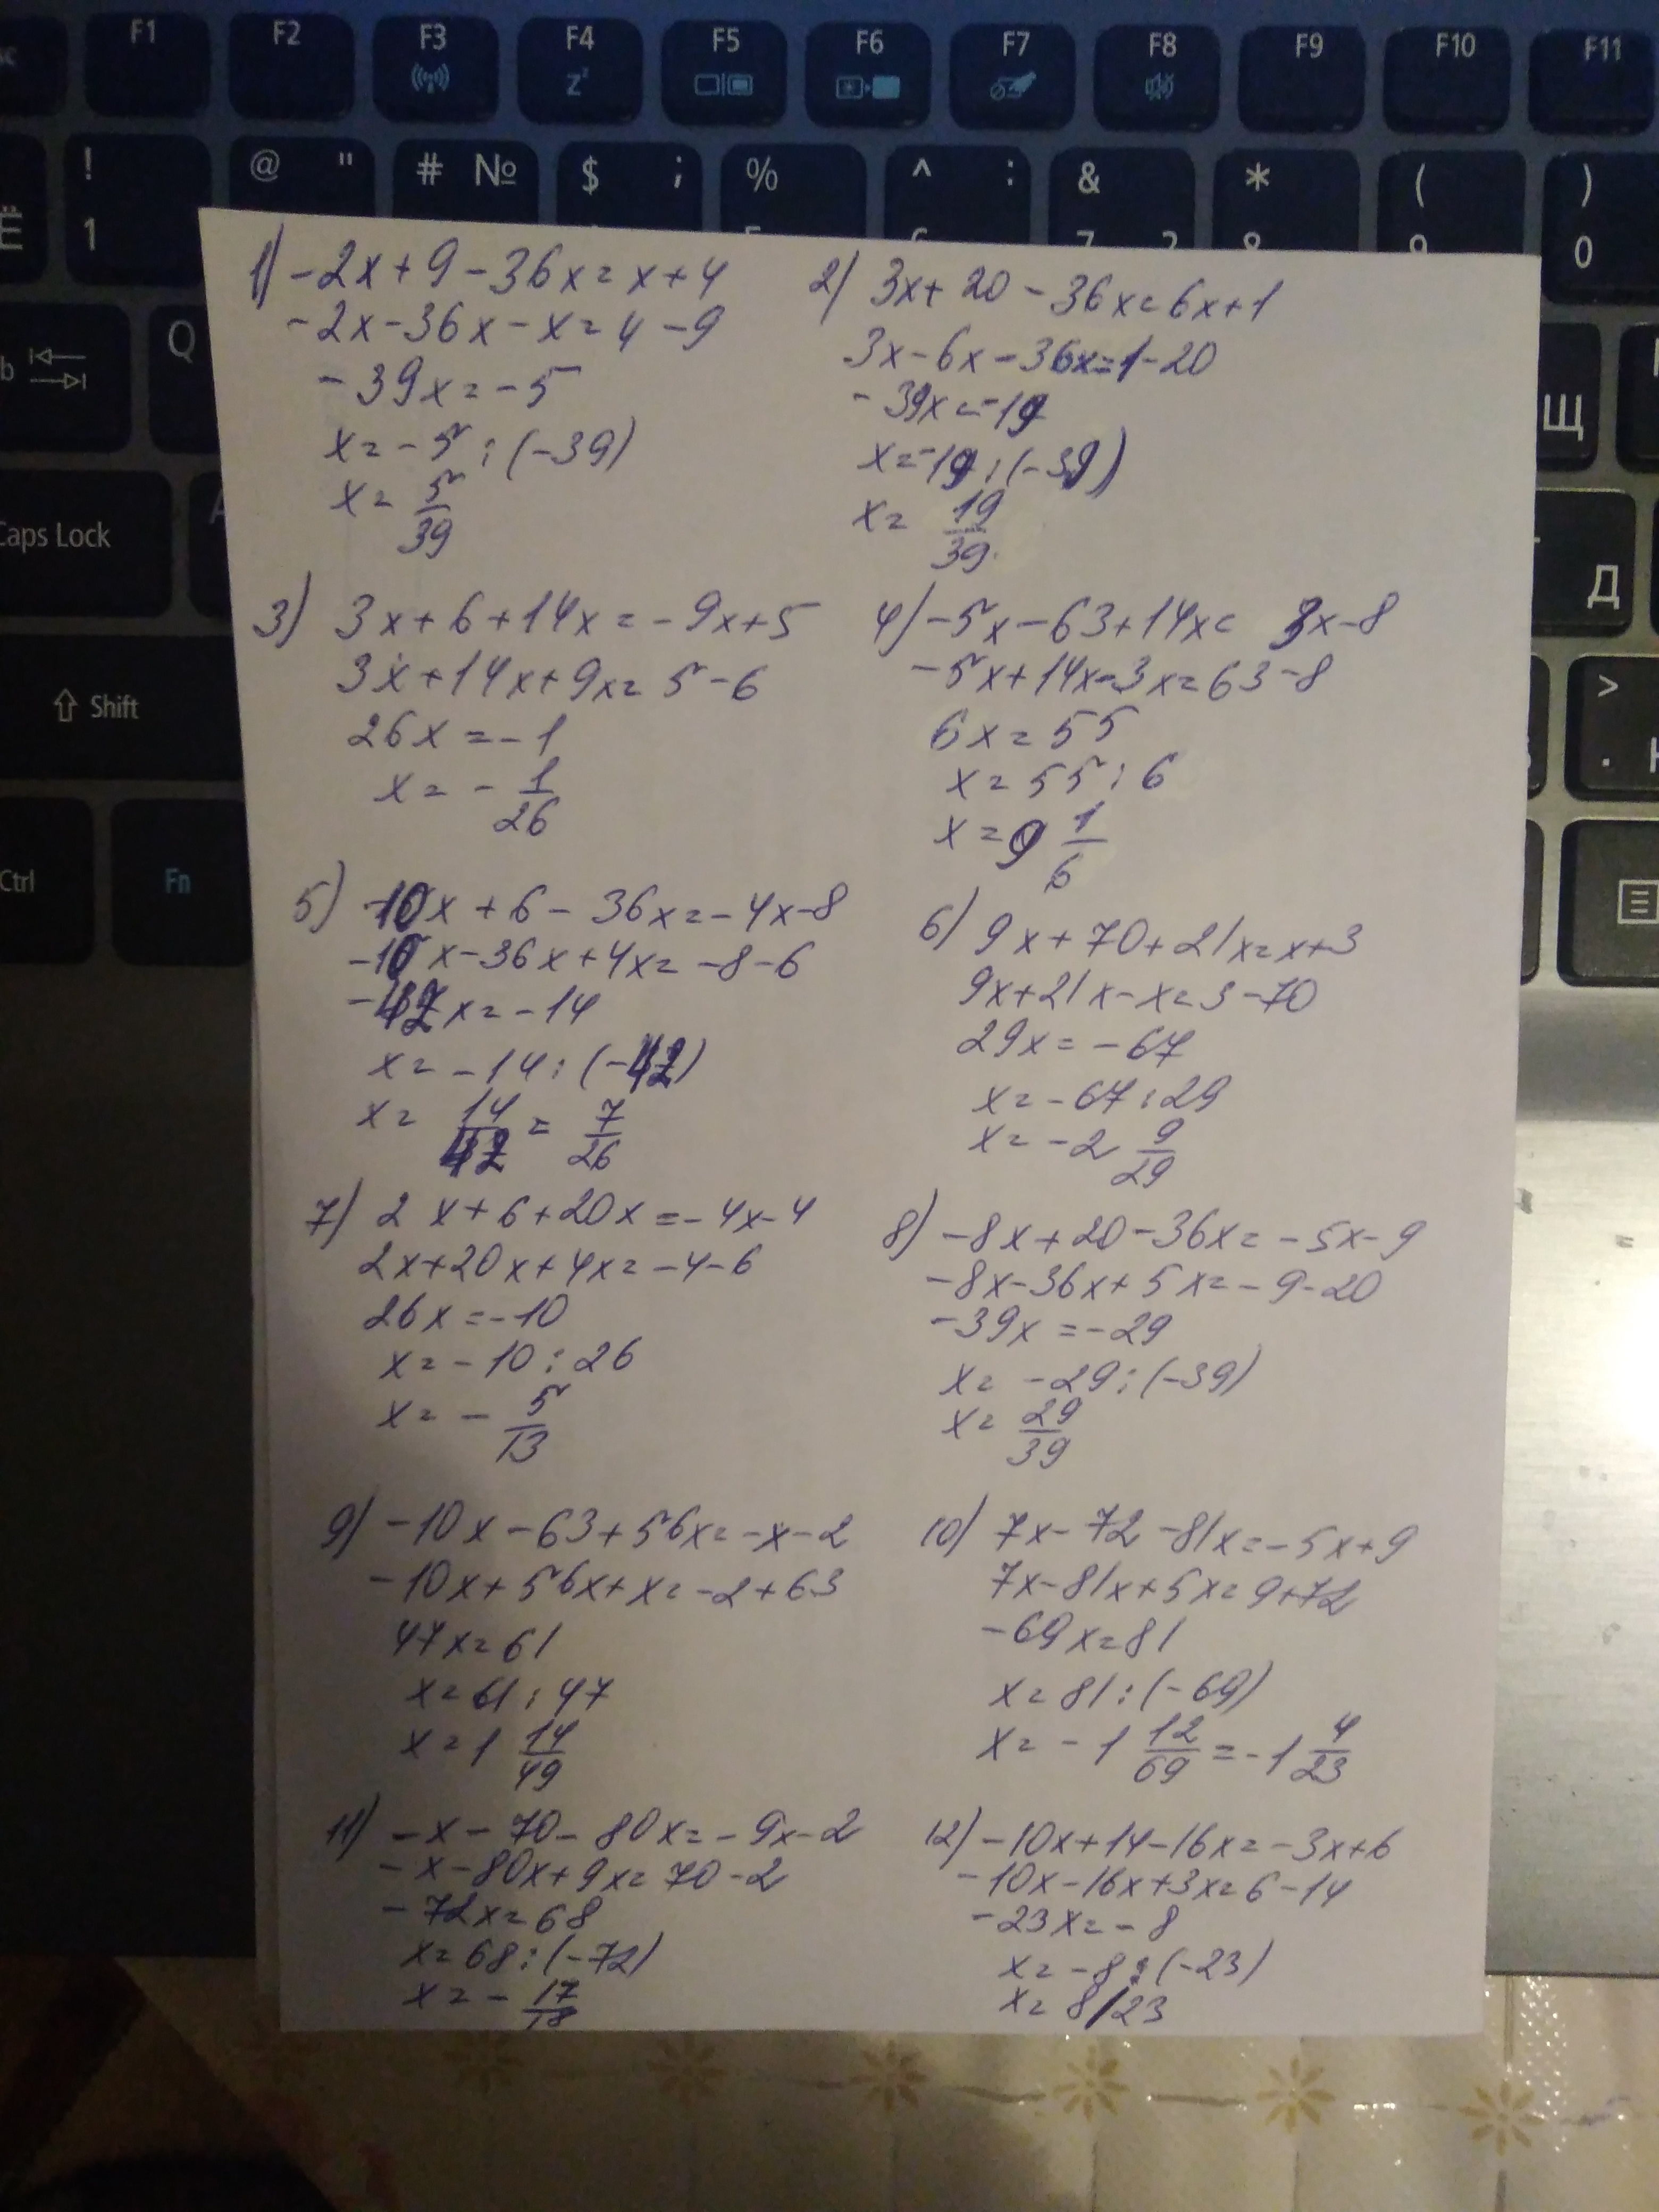 F1 F2 F3 F4 F5 F6 F7 F8 F9 F10 F11
! @ " # № $ ; % ^ : & * ( )
Ё 1 0
Q
Щ
Caps Lock
Д
Shift
>
.
Ctrl Fn
1) -2x+9-36x=x+4
-2x-36x-x=4-9
-39x=-5
x=-5:(-39)
x= 5/39
2) 3x+20-36x=6x+1
3x-6x-36x=1-20
-39x=-19
x=-19:(-39)
x= 19/39
3) 3x+6+14x=-9x+5
3x+14x+9x=5-6
26x=-1
x=- 1/26
4) -5x-63+14x= 3x-8
-5x+14x-3x=63-8
6x=55
x=55:6
x=9 1/6
5) -10x+6-36x=-4x-8
-10x-36x+4x=-8-6
-42x=-14
x=-14:(-42)
x= 14/42 = 7/26
6) 9x+70+21x=x+3
9x+21x-x=3-70
29x=-67
x=-67:29
x=-2 9/29
7) 2x+6+20x=-4x-4
2x+20x+4x=-4-6
26x=-10
x=-10:26
x=- 5/13
8) -8x+20-36x=-5x-9
-8x-36x+5x=-9-20
-39x=-29
x=-29:(-39)
x= 29/39
9) -10x-63+56x=-x-2
-10x+56x+x=-2+63
47x=61
x=61:47
x=1 14/49
10) 7x-72-81x=-5x+9
7x-81x+5x=9+72
-69x=81
x=81:(-69)
x=-1 12/69 =-1 4/23
11) -x-70-80x=-9x-2
-x-80x+9x=70-2
-72x=68
x=68:(-72)
x=- 17/18
12) -10x+14-16x=-3x+6
-10x-16x+3x=6-14
-23x=-8
x=-8:(-23)
x=8/23